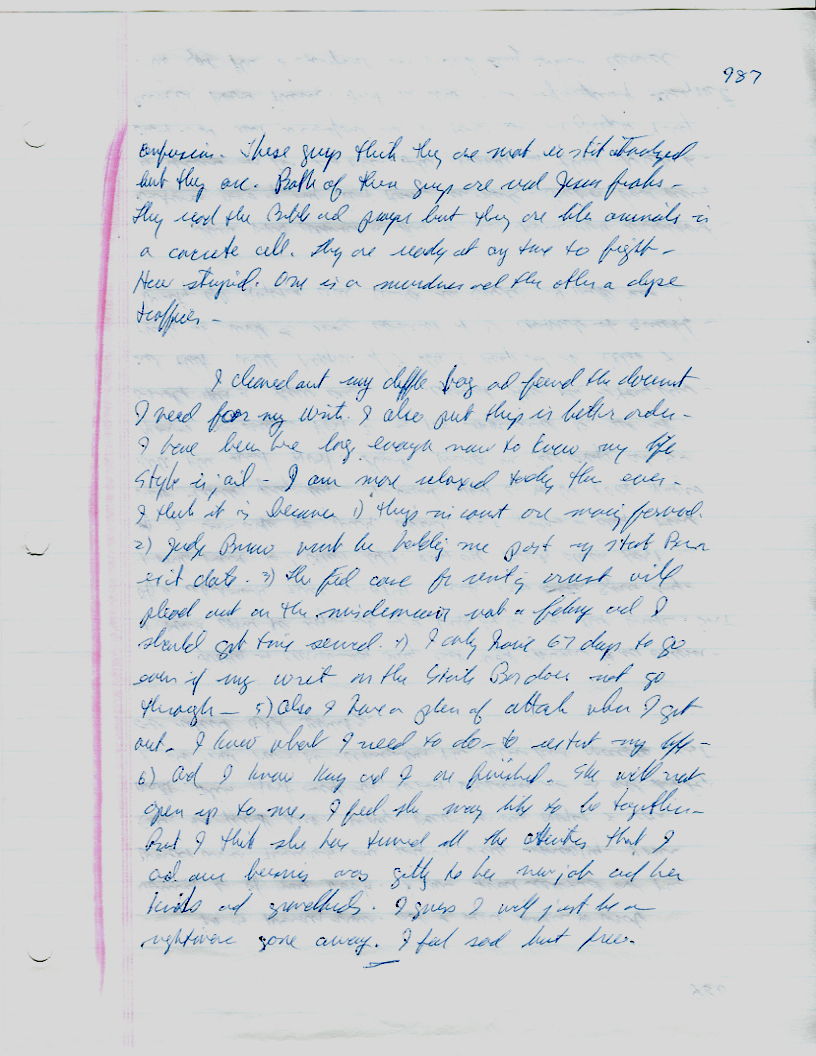 987
confusion. These guys think they are not institutionalized
but they are. Both of these guys are real Jesus freaks -
They read the Bible and prayer but they are like animals in
a concrete cell. They are ready at any time to fight -
How stupid. One is a murderer and the other a dope
trafficer -
I cleaned out my duffle bag and found the document
I need for my writ. I also put things in better order -
I have been here long enough now to know my life
Style is jail - I am more relaxed today than ever -
I think it is because 1) things in court are moving forward.
2) Judge won't be holding me past my state Prison
exit date. 3) The Fed case for resisting arrest will
plead out on the misdemeanor not a felony and I
should get time served. 4) I only have 67 days to go
even if my writ on the State Bar does not go
through - 5) also I have a plan of attack when I get
out - I know what I need to do - to restart my life -
6) And I know Kay and I are finished. She will not
open up to me. I feel she may like to be together -
But I think she has turned all the attention that I
and our business was getting to her new job and her
kids and grandkids. I guess I will just be a
nightmare gone away. I feel sad but free.